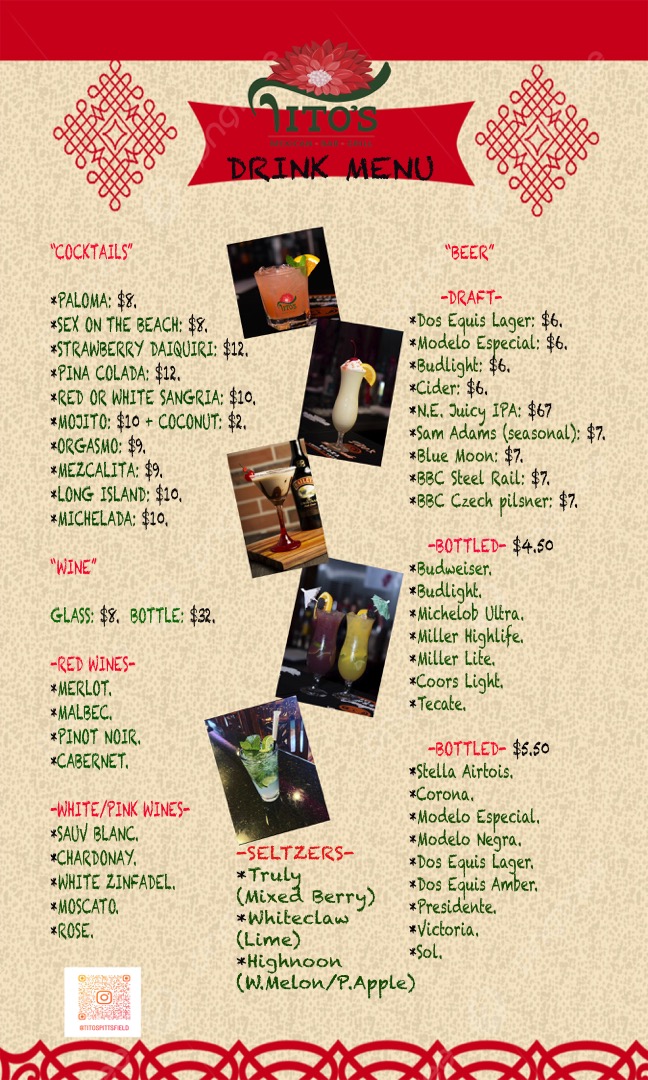 TITO'S
MEXICAN • BAR • GRILL
DRINK MENU
"COCKTAILS"
*PALOMA: $8.
*SEX ON THE BEACH: $8.
*STRAWBERRY DAIQUIRI: $12.
*PINA COLADA: $12.
*RED OR WHITE SANGRIA: $10.
*MOJITO: $10 + COCONUT: $2.
*ORGASMO: $9.
*MEZCALITA: $9.
*LONG ISLAND: $10.
*MICHELADA: $10.
"WINE"
GLASS: $8. BOTTLE: $32.
-RED WINES-
*MERLOT.
*MALBEC.
*PINOT NOIR.
*CABERNET.
-WHITE/PINK WINES-
*SAUV BLANC.
*CHARDONAY.
*WHITE ZINFADEL.
*MOSCATO.
*ROSE.
@TITOSPITTSFIELD
-SELTZERS-
*Truly
(Mixed Berry)
*Whiteclaw
(Lime)
*Highnoon
(W.Melon/P.Apple)
"BEER"
-DRAFT-
*Dos Equis Lager: $6.
*Modelo Especial: $6.
*Budlight: $6.
*Cider: $6.
*N.E. Juicy IPA: $67
*Sam Adams (seasonal): $7.
*Blue Moon: $7.
*BBC Steel Rail: $7.
*BBC Czech pilsner: $7.
-BOTTLED- $4.50
*Budweiser.
*Budlight.
*Michelob Ultra.
*Miller Highlife.
*Miller Lite.
*Coors Light.
*Tecate.
-BOTTLED- $5.50
*Stella Airtois.
*Corona.
*Modelo Especial.
*Modelo Negra.
*Dos Equis Lager.
*Dos Equis Amber.
*Presidente.
*Victoria.
*Sol.